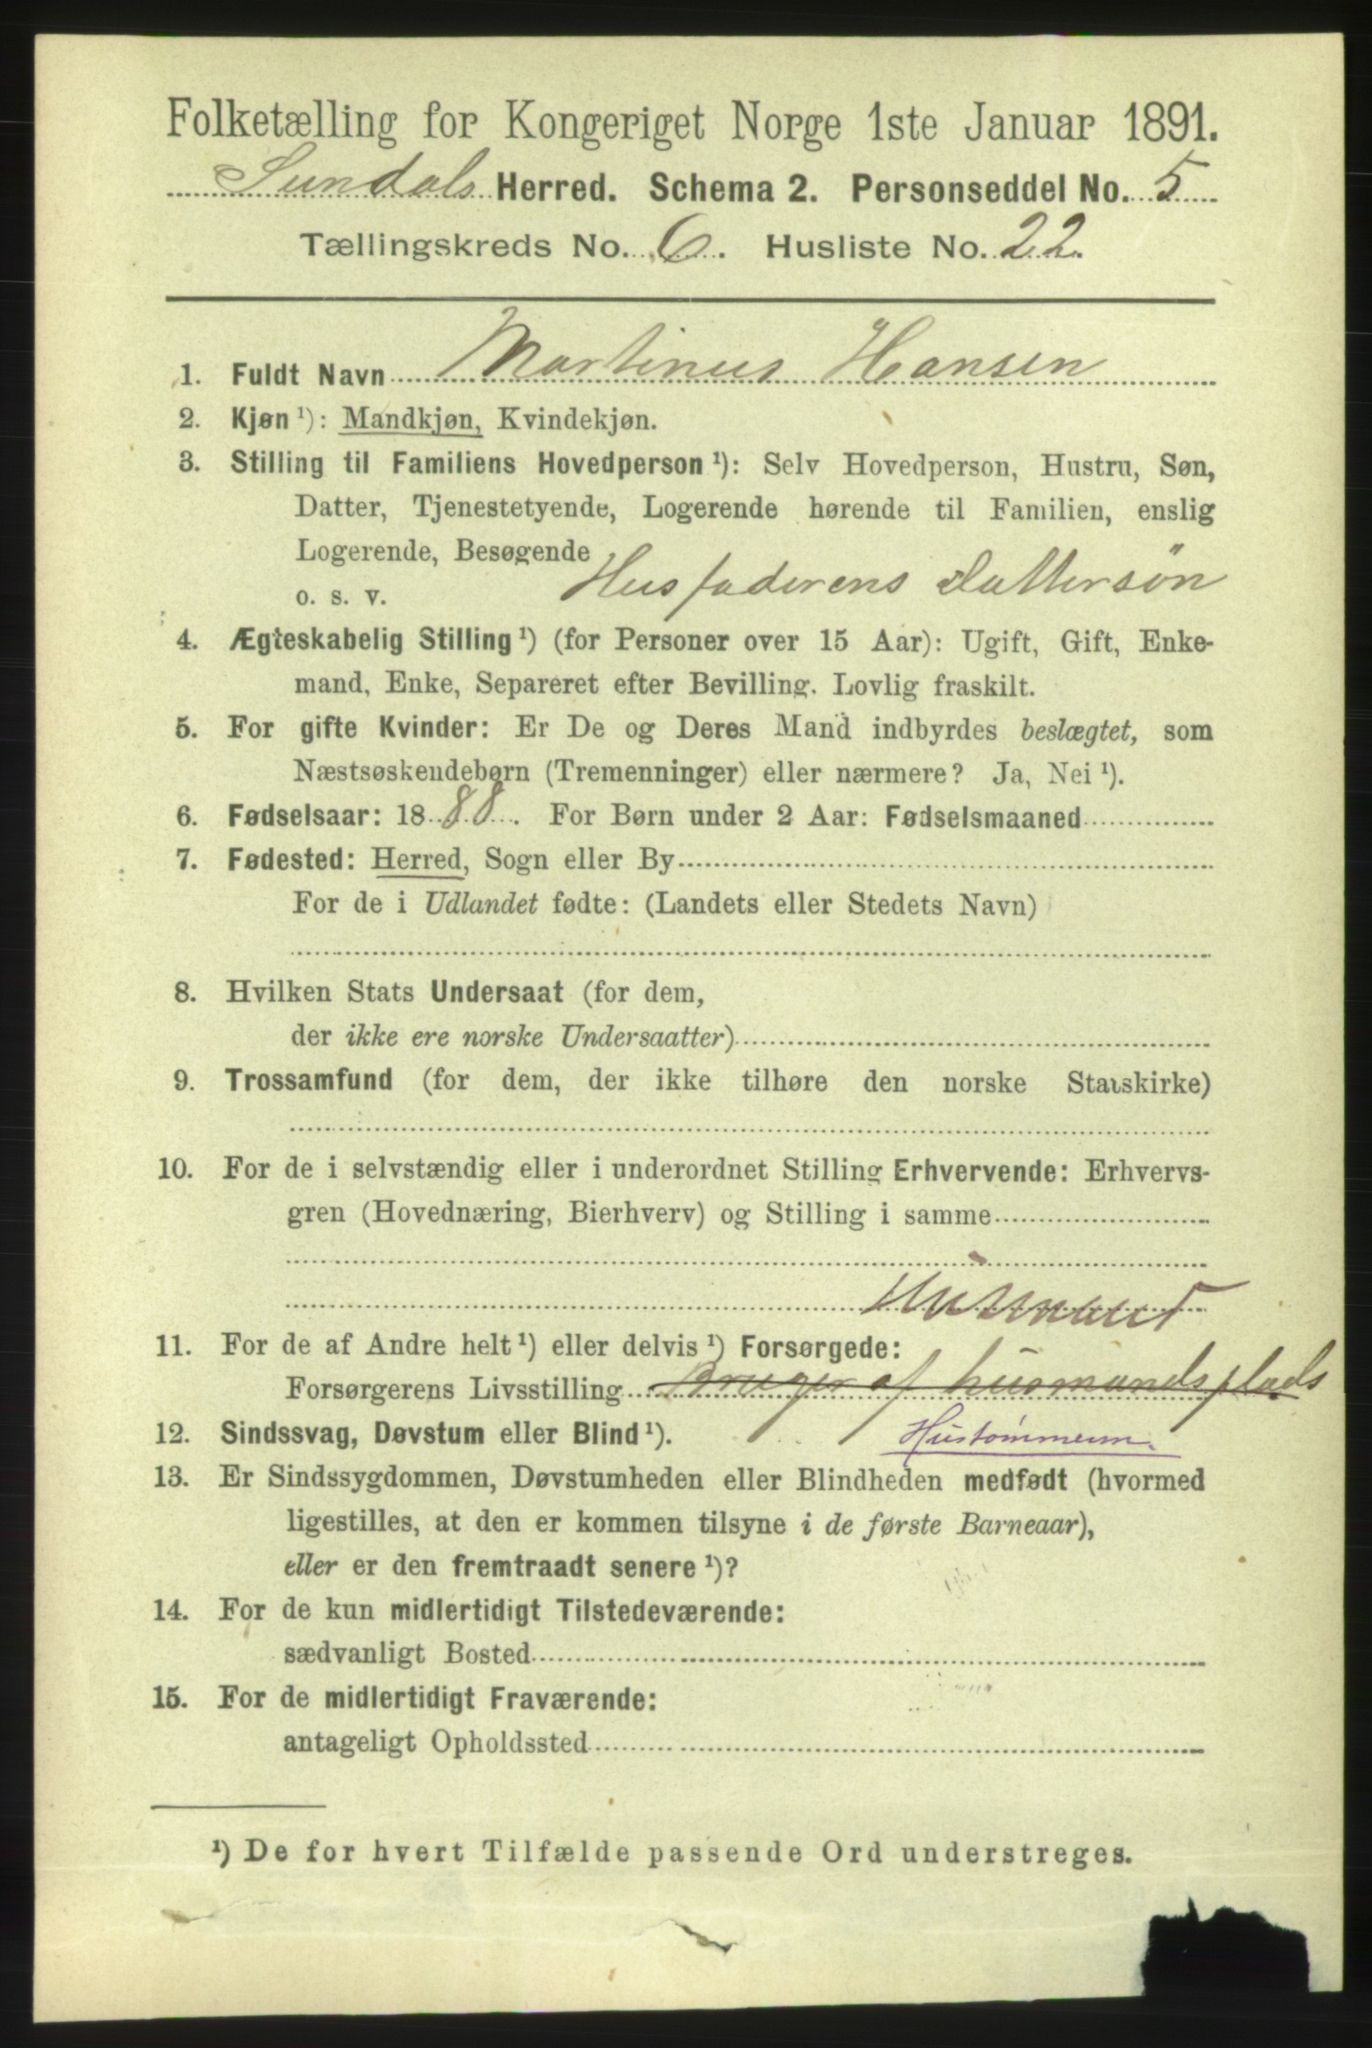 Folketælling for Kongeriget Norge 1ste Januar 1891.
Sundals Herred. Schema 2. Personseddel No. 5
Tællingskreds No. 6. Husliste No. 22.
1. Fuldt Navn Martinus Hansen
2. Kjøn ¹): Mandkjøn, Kvindekjøn.
3. Stilling til Familiens Hovedperson ¹): Selv Hovedperson, Hustru, Søn,
Datter, Tjenestetyende, Logerende hørende til Familien, enslig
Logerende, Besøgende
o. s. v. Husfaderens Dattersøn
4. Ægteskabelig Stilling ¹) (for Personer over 15 Aar): Ugift, Gift, Enke-
mand, Enke, Separeret efter Bevilling. Lovlig fraskilt.
5. For gifte Kvinder: Er De og Deres Mand indbyrdes beslægtet, som
Næstsøskendebørn (Tremenninger) eller nærmere? Ja, Nei ¹).
6. Fødselsaar: 1888. For Børn under 2 Aar: Fødselsmaaned
7. Fødested: Herred, Sogn eller By
For de i Udlandet fødte: (Landets eller Stedets Navn)
8. Hvilken Stats Undersaat (for dem,
der ikke ere norske Undersaatter)
9. Trossamfund (for dem, der ikke tilhøre den norske Statskirke)
10. For de i selvstændig eller i underordnet Stilling Erhvervende: Erhvervs-
gren (Hovednæring, Bierhverv) og Stilling i samme
Husmand
11. For de af Andre helt ¹) eller delvis ¹) Forsørgede:
Forsørgerens Livsstilling Bruger af husmandsplads
12. Sindssvag, Døvstum eller Blind ¹). Hustømmerm.
13. Er Sindssygdommen, Døvstumheden eller Blindheden medfødt (hvormed
ligestilles, at den er kommen tilsyne i de første Barneaar),
eller er den fremtraadt senere ¹)?
14. For de kun midlertidigt Tilstedeværende:
sædvanligt Bosted
15. For de midlertidigt Fraværende:
antageligt Opholdssted
¹) De for hvert Tilfælde passende Ord understreges.